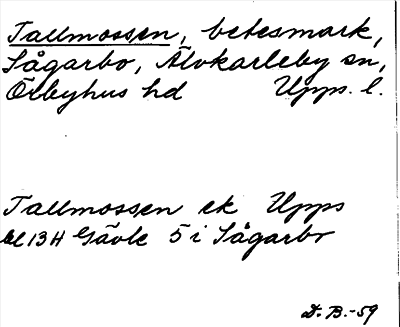 Tallmossen, betesmark,
Sågarbo, Älvkarleby sn,
Örbyhus hd Upps. l.
Tallmossen ek Upps
bl 13H Gävle 5i Sågarbo
D. B. -59